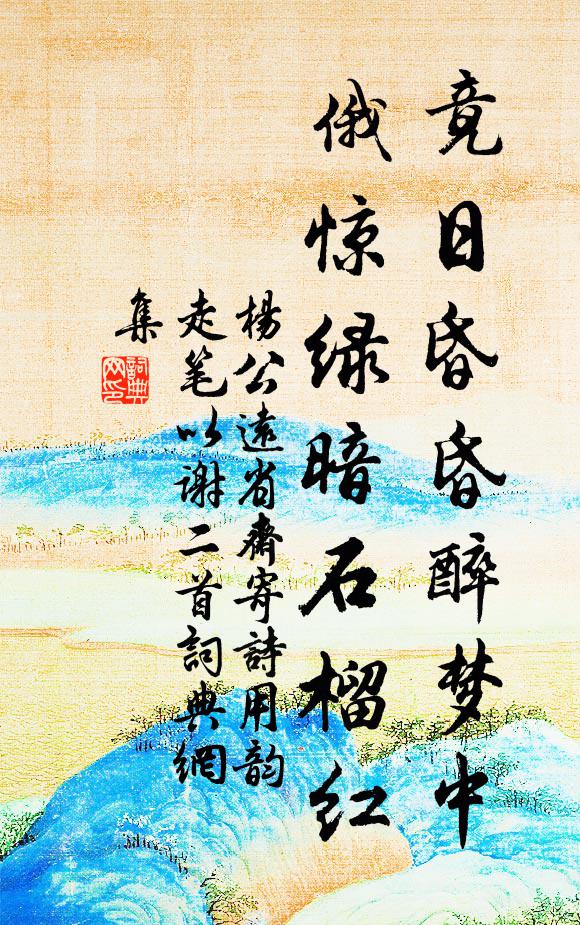 竟日昏昏醉梦中
俄惊绿暗石榴红
杨公遠省齋寄詩用韵
走笔以谢二首詞典網
集
詞典网印